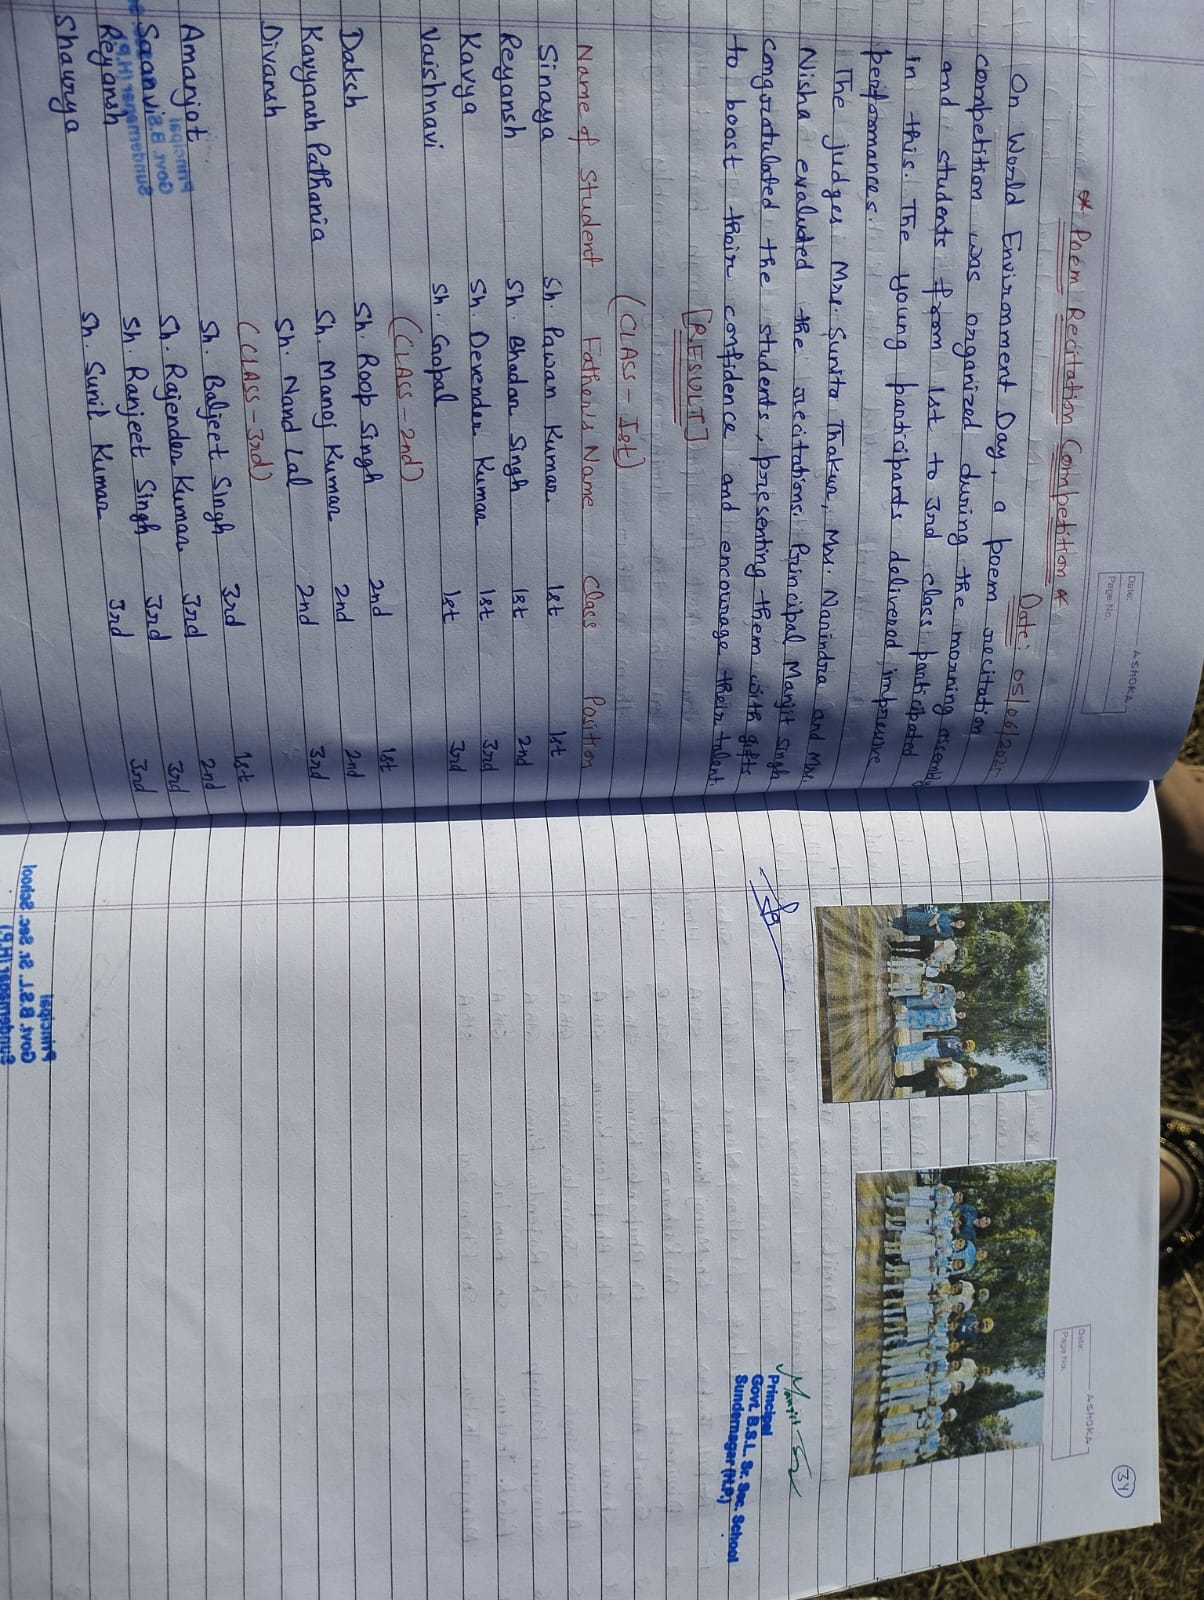 ASHOKA
Date:
Page No.
* Poem Recitation Competition *
Date: 05/06/2025
On World Environment Day, a poem recitation
competition was organized during the morning assembly
and students from 1st to 3rd class participated
in this. The young participants delivered impressive
performances.
The judges Mrs. Sunita Thakur, Mrs. Narindra and Mrs.
Nisha evaluted the recitations. Principal Manjit Singh
congratulated the students, presenting them with gifts
to boost their confidence and encourage their talent.
[RESULT]
(CLASS - Ist)
Name of Student Father's Name Class Position
Sinaya Sh. Pawan Kumar 1st 1st
Reyansh Sh. Bhadar Singh 1st 2nd
Kavya Sh. Devender Kumar 1st 3rd
Vaishnavi Sh. Gopal 1st 3rd
(CLASS - 2nd)
Daksh Sh. Roop Singh 2nd 1st
Kavyansh Pathania Sh. Manoj Kumar 2nd 2nd
Divansh Sh. Nand Lal 2nd 3rd
(CLASS - 3rd)
Amanjot Sh. Baljeet Singh 3rd 1st
Saanvi Sh. Rajender Kumar 3rd 2nd
Reyansh Sh. Ranjeet Singh 3rd 3rd
Shaurya Sh. Sunil Kumar 3rd 3rd
34
ASHOKA
Date:
Page No.
Manjit
Principal
Govt. B.S.L. Sr. Sec. School
Sundernagar (H.P.)
Principal
Govt. B.S.L. Sr. Sec. School
Sundernagar (H.P.)